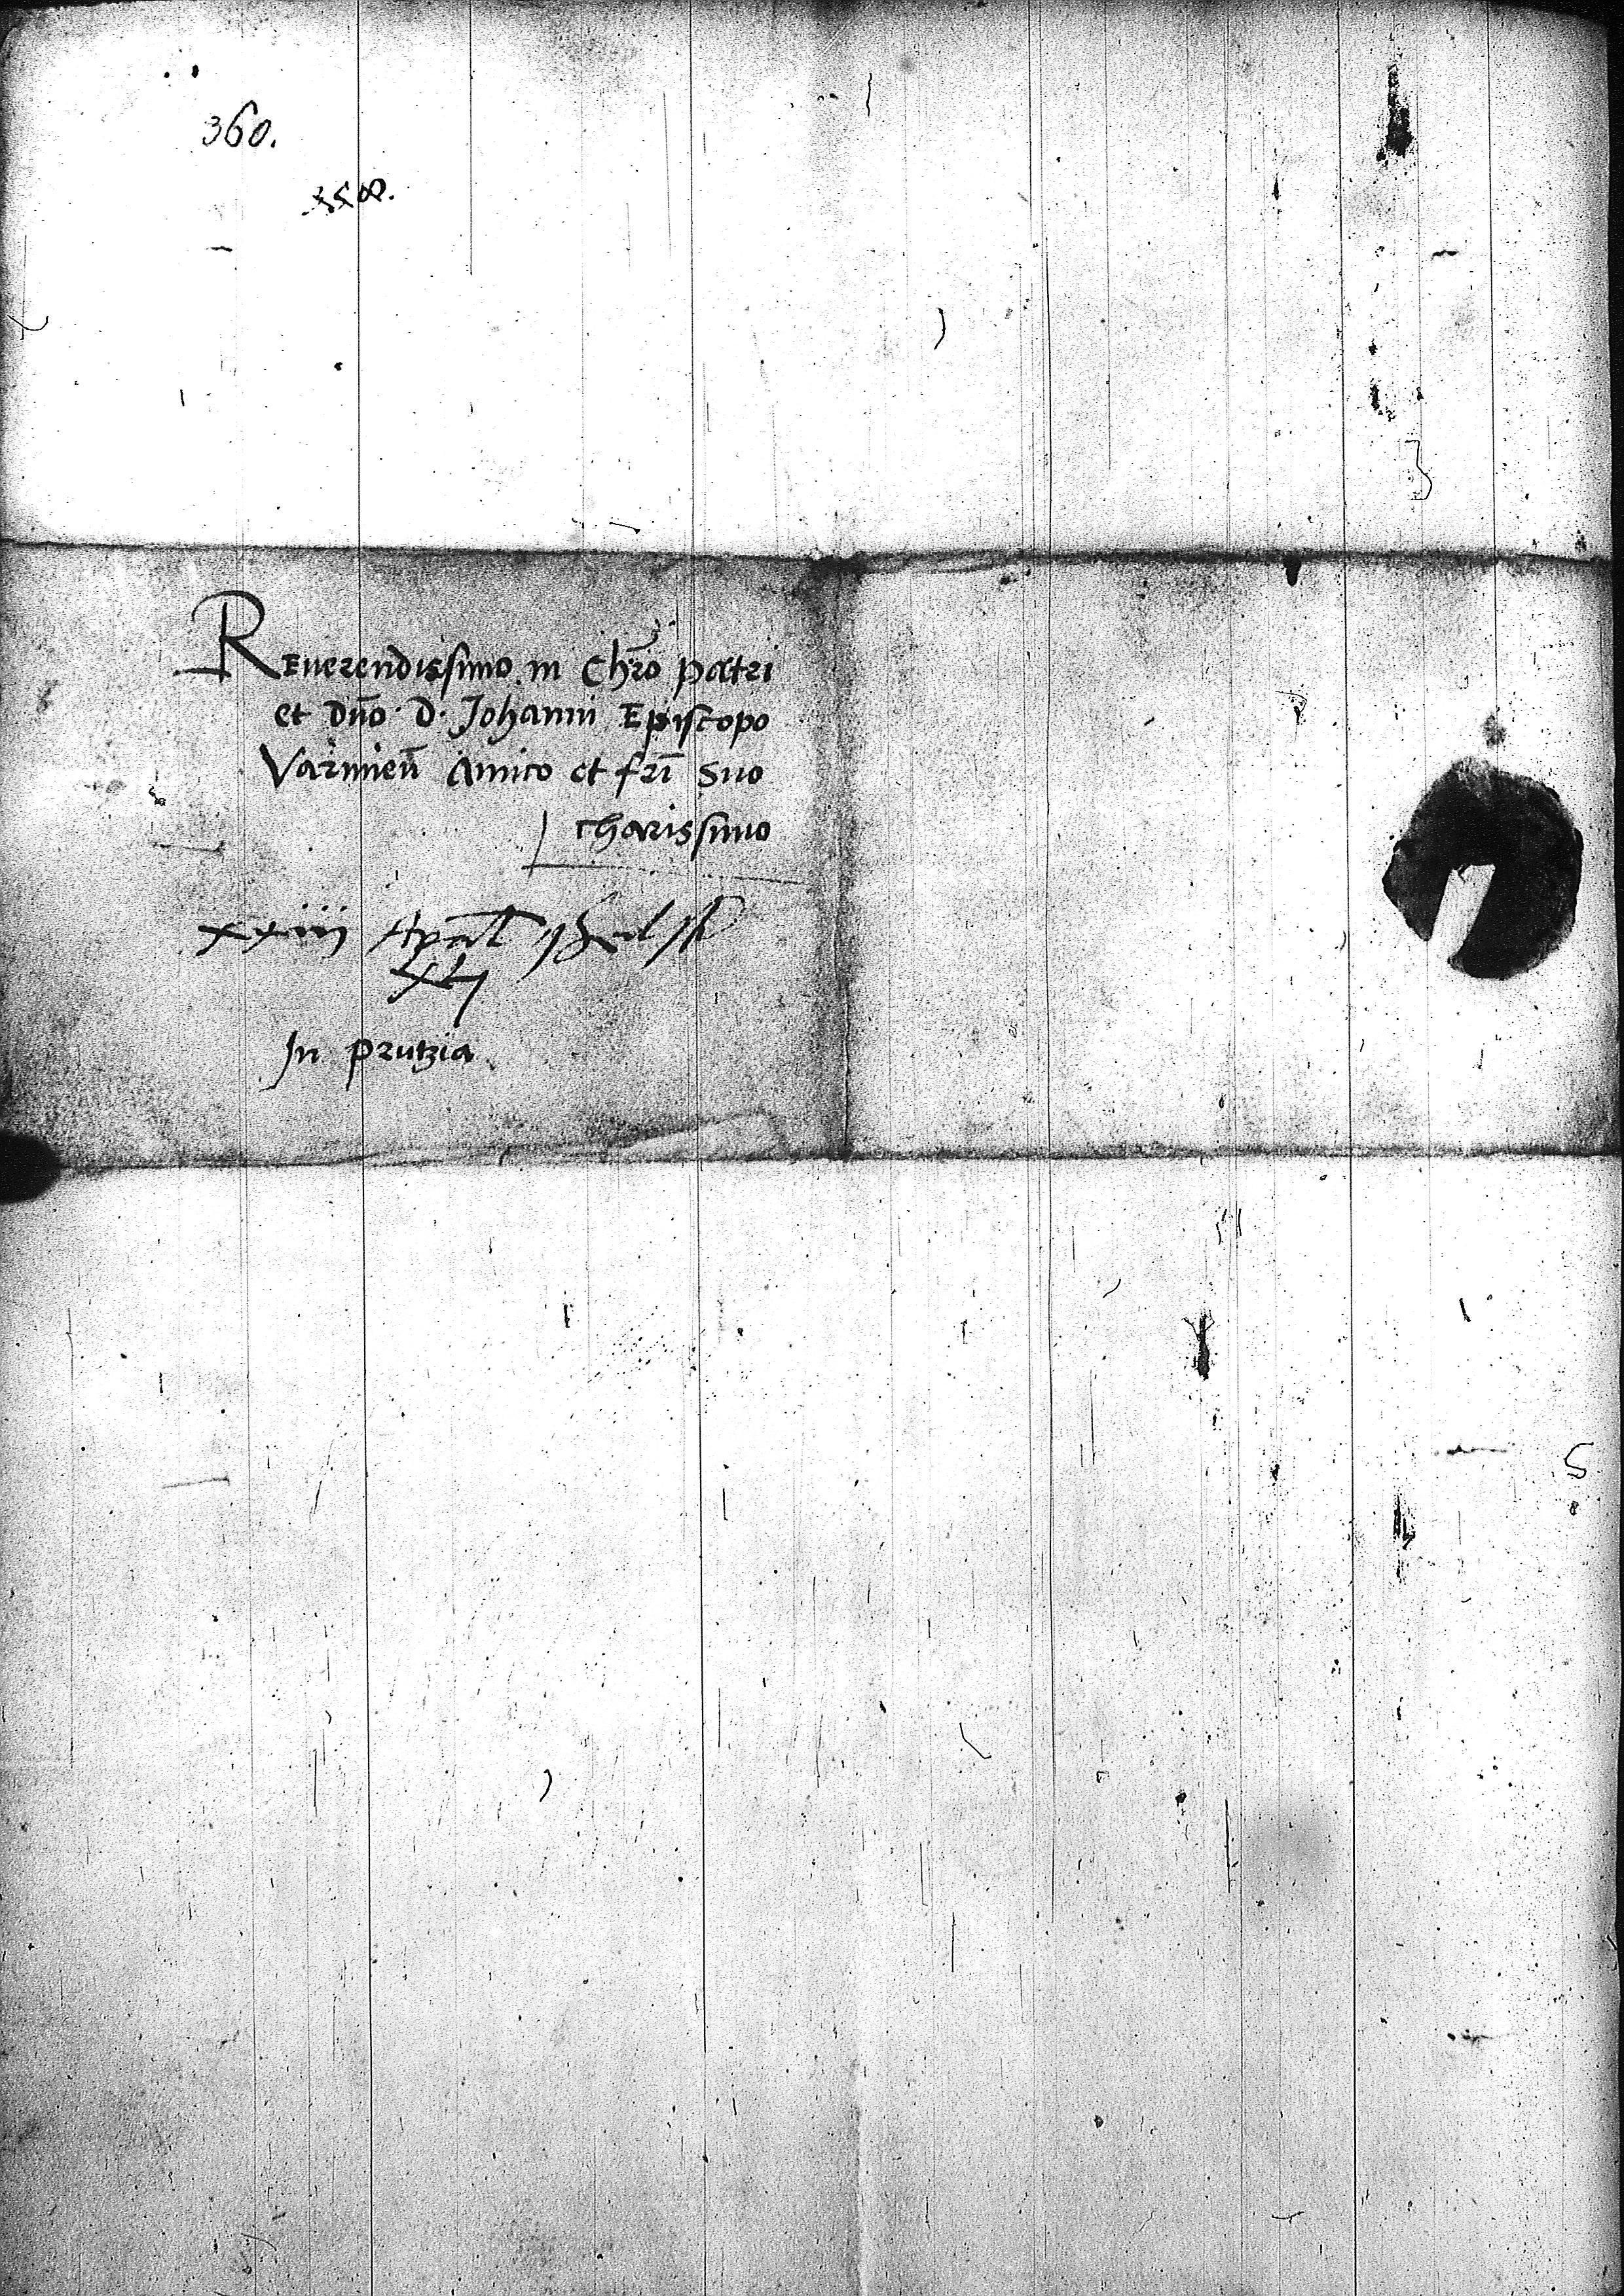 360.
Reuerendissimo in Chro patri
et dno D. Johanni Episcopo
Varmien Amico et fri suo
charissimo
xxiiij
In Prutzia